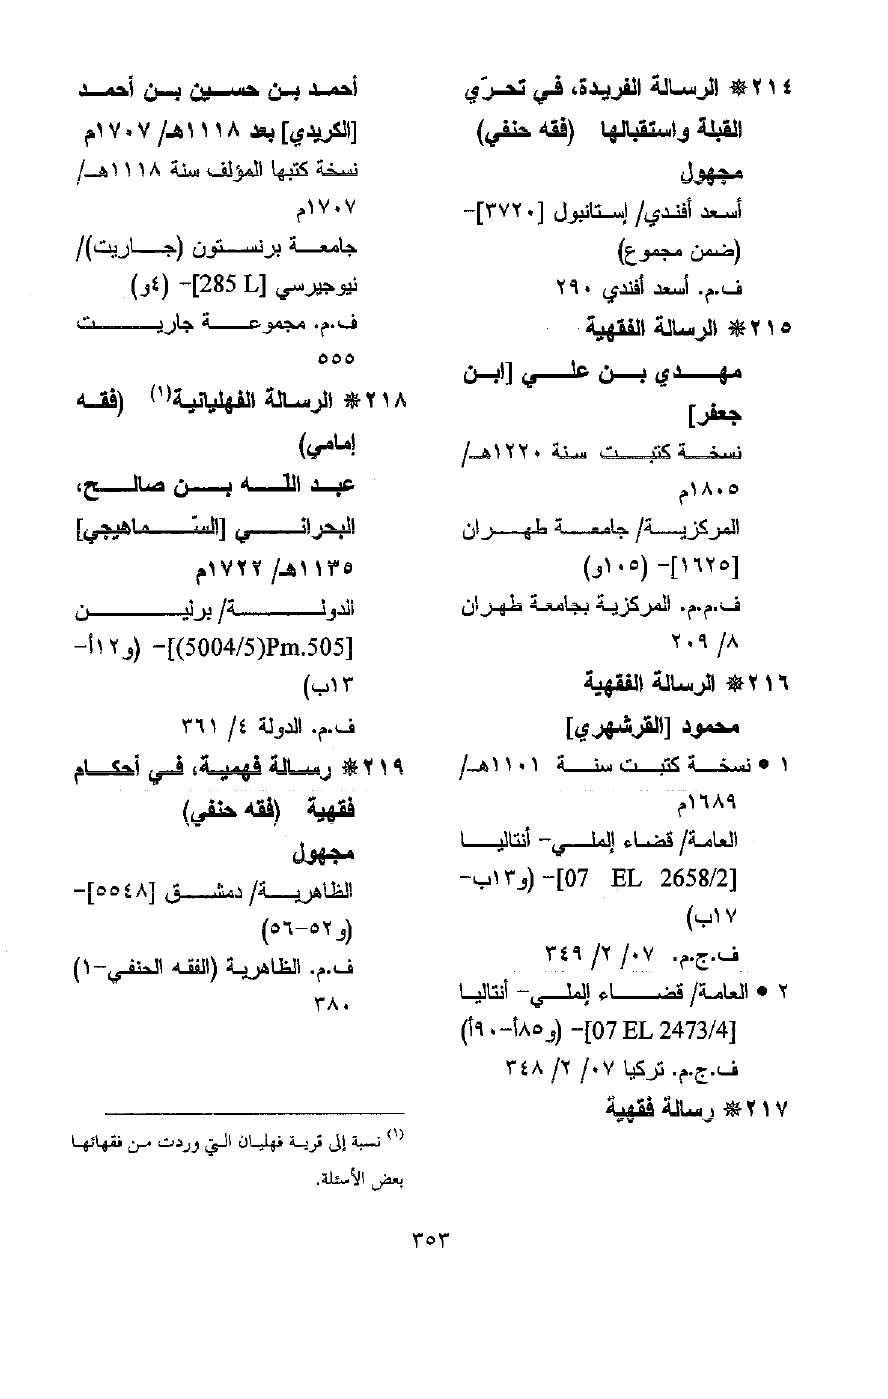 ٢١٤ ❊ الرسالة الفريدة، في تحرّي
القبلة واستقبالها (فقه حنفي)
مجهول
أسعد أفندي/ إستانبول [٣٧٢٠]-
(ضمن مجموع)
ف.م. أسعد أفندي ٢٩٠
٢١٥ ❊ الرسالة الفقهية
مهدي بن علي [ابن
جعفر]
نسخة كتبت سنة ١٢٢٠هـ/
١٨٠٥م
المركزية/ جامعة طهران
[١٦٢٥]- (١٠٥و)
ف.م.م. المركزية بجامعة طهران
٨/ ٢٠٩
٢١٦ ❊ الرسالة الفقهية
محمود [القرشهري]
١ • نسخة كتبت سنة ١١٠١هـ/
١٦٨٩م
العامة/ قضاء إلملي- أنتاليا
[07 EL 2658/2]- (و١٣ب-
١٧ب)
ف.ج.م. ٠٧/ ٢/ ٣٤٩
٢ • العامة/ قضاء إلملي- أنتاليا
[07 EL 2473/4]- (و٨٥أ-٩٠أ)
ف.ج.م. تركيا ٠٧/ ٢/ ٣٤٨
٢١٧ ❊ رسالة فقهية
أحمد بن حسين بن أحمد
[الكريدي] بعد ١١١٨هـ/ ١٧٠٧م
نسخة كتبها المؤلف سنة ١١١٨هـ/
١٧٠٧م
جامعة برنستون (جاريت)/
نيوجيرسي [285 L]- (٤و)
ف.م. مجموعة جاريت
٥٥٥
٢١٨ ❊ الرسالة الفهليانية(١) (فقه
إمامي)
عبد الله بن صالح،
البحراني [السّماهيجي]
١١٣٥هـ/ ١٧٢٢م
الدولة/ برلين
[Pm.505(5004/5)]- (و١٢أ-
١٣ب)
ف.م. الدولة ٤/ ٣٦١
٢١٩ ❊ رسالة فهمية، في أحكام
فقهية (فقه حنفي)
مجهول
الظاهرية/ دمشق [٥٥٤٨]-
(و٥٢-٥٦)
ف.م. الظاهرية (الفقه الحنفي-١)
٣٨٠
(١) نسبة إلى قرية فهليان التي وردت من فقهائها
بعض الأسئلة.
٣٥٣